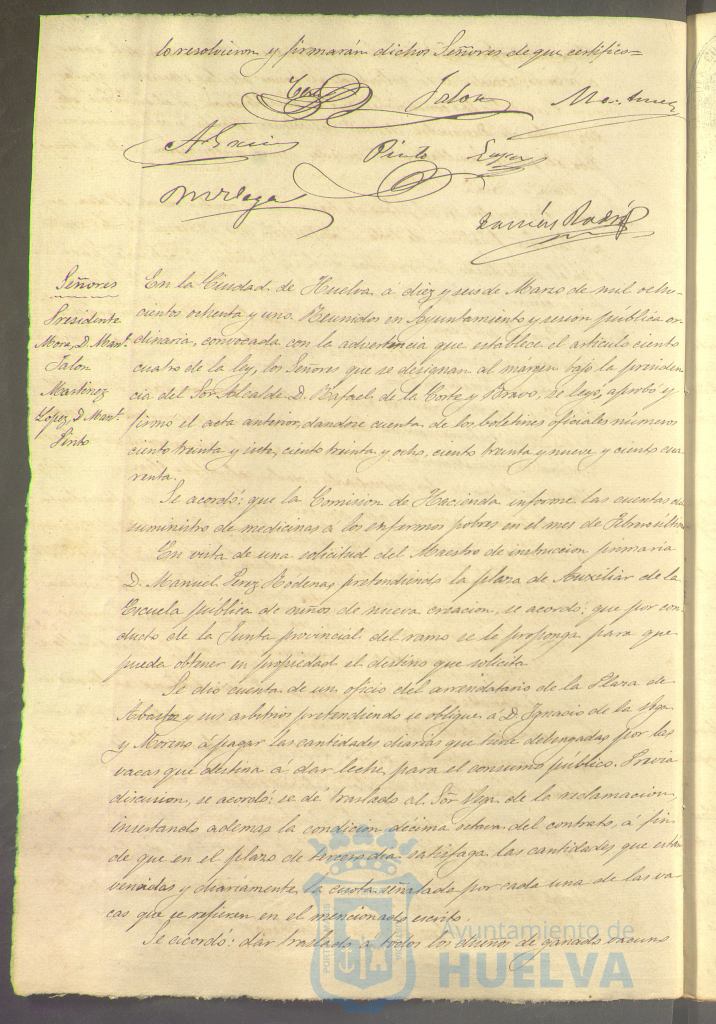 lo resolvieron y firmarán dichos Señores de que certifico=
Jalon
Pinto
Señores
Presidente
Mora, D. Manl.
Jalon
Martinez
López, D. Manl.
Pinto
En la Ciudad de Huelva á diez y seis de Marzo de mil ocho-
cientos ochenta y uno. Reunidos en Ayuntamiento y sesion publica or-
dinaria, convocada con la advertencia que establece el artículo ciento
cuatro de la ley, los Señores que se designan al margen bajo la presiden-
cia del Sor. Alcalde D. Rafael de la Corte y Bravo, se leyó, aprobó y
firmó el acta anterior, dandose cuenta de los boletines oficiales números
ciento treinta y siete, ciento treinta y ocho, ciento treinta y nueve y ciento cua-
renta.
Se acordó: que la Comision de Hacienda informe las cuentas de
suministro de medicinas á los enfermos pobres en el mes de Febrero último
En vista de una solicitud del Maestro de instruccion primaria
D. Manuel Perez Rodenas, pretendiendo la plaza de Auxiliar de la
Escuela publica de niños de nueva creacion, se acordó: que por con-
ducto de la Junta provincial del ramo se le proponga para que
pueda obtener en propiedad el destino que solicita
Se dió cuenta de un oficio del arrendatario de la Plaza de
Abastos y sus arbitrios pretendiendo se obligue á D. Ignacio de la Vega
y Moreno, á pagar las cantidades diarias que tiene devengadas por las
vacas que destina á dar leche, para el consumo público. Previa
discusion, se acordó: se dé traslado al Sor. Vega de la reclamacion,
insertando ademas la condicion décima octava del contrato, á fin
de que en el plazo de tercero dia satisfaga las cantidades que están
vencidas y diariamente la cuota señalada por cada una de las va-
cas que se refieren en el mencionado escrito.
Se acordó: dar traslado a todos los dueños de ganado vacuno
Ayuntamiento de
HUELVA